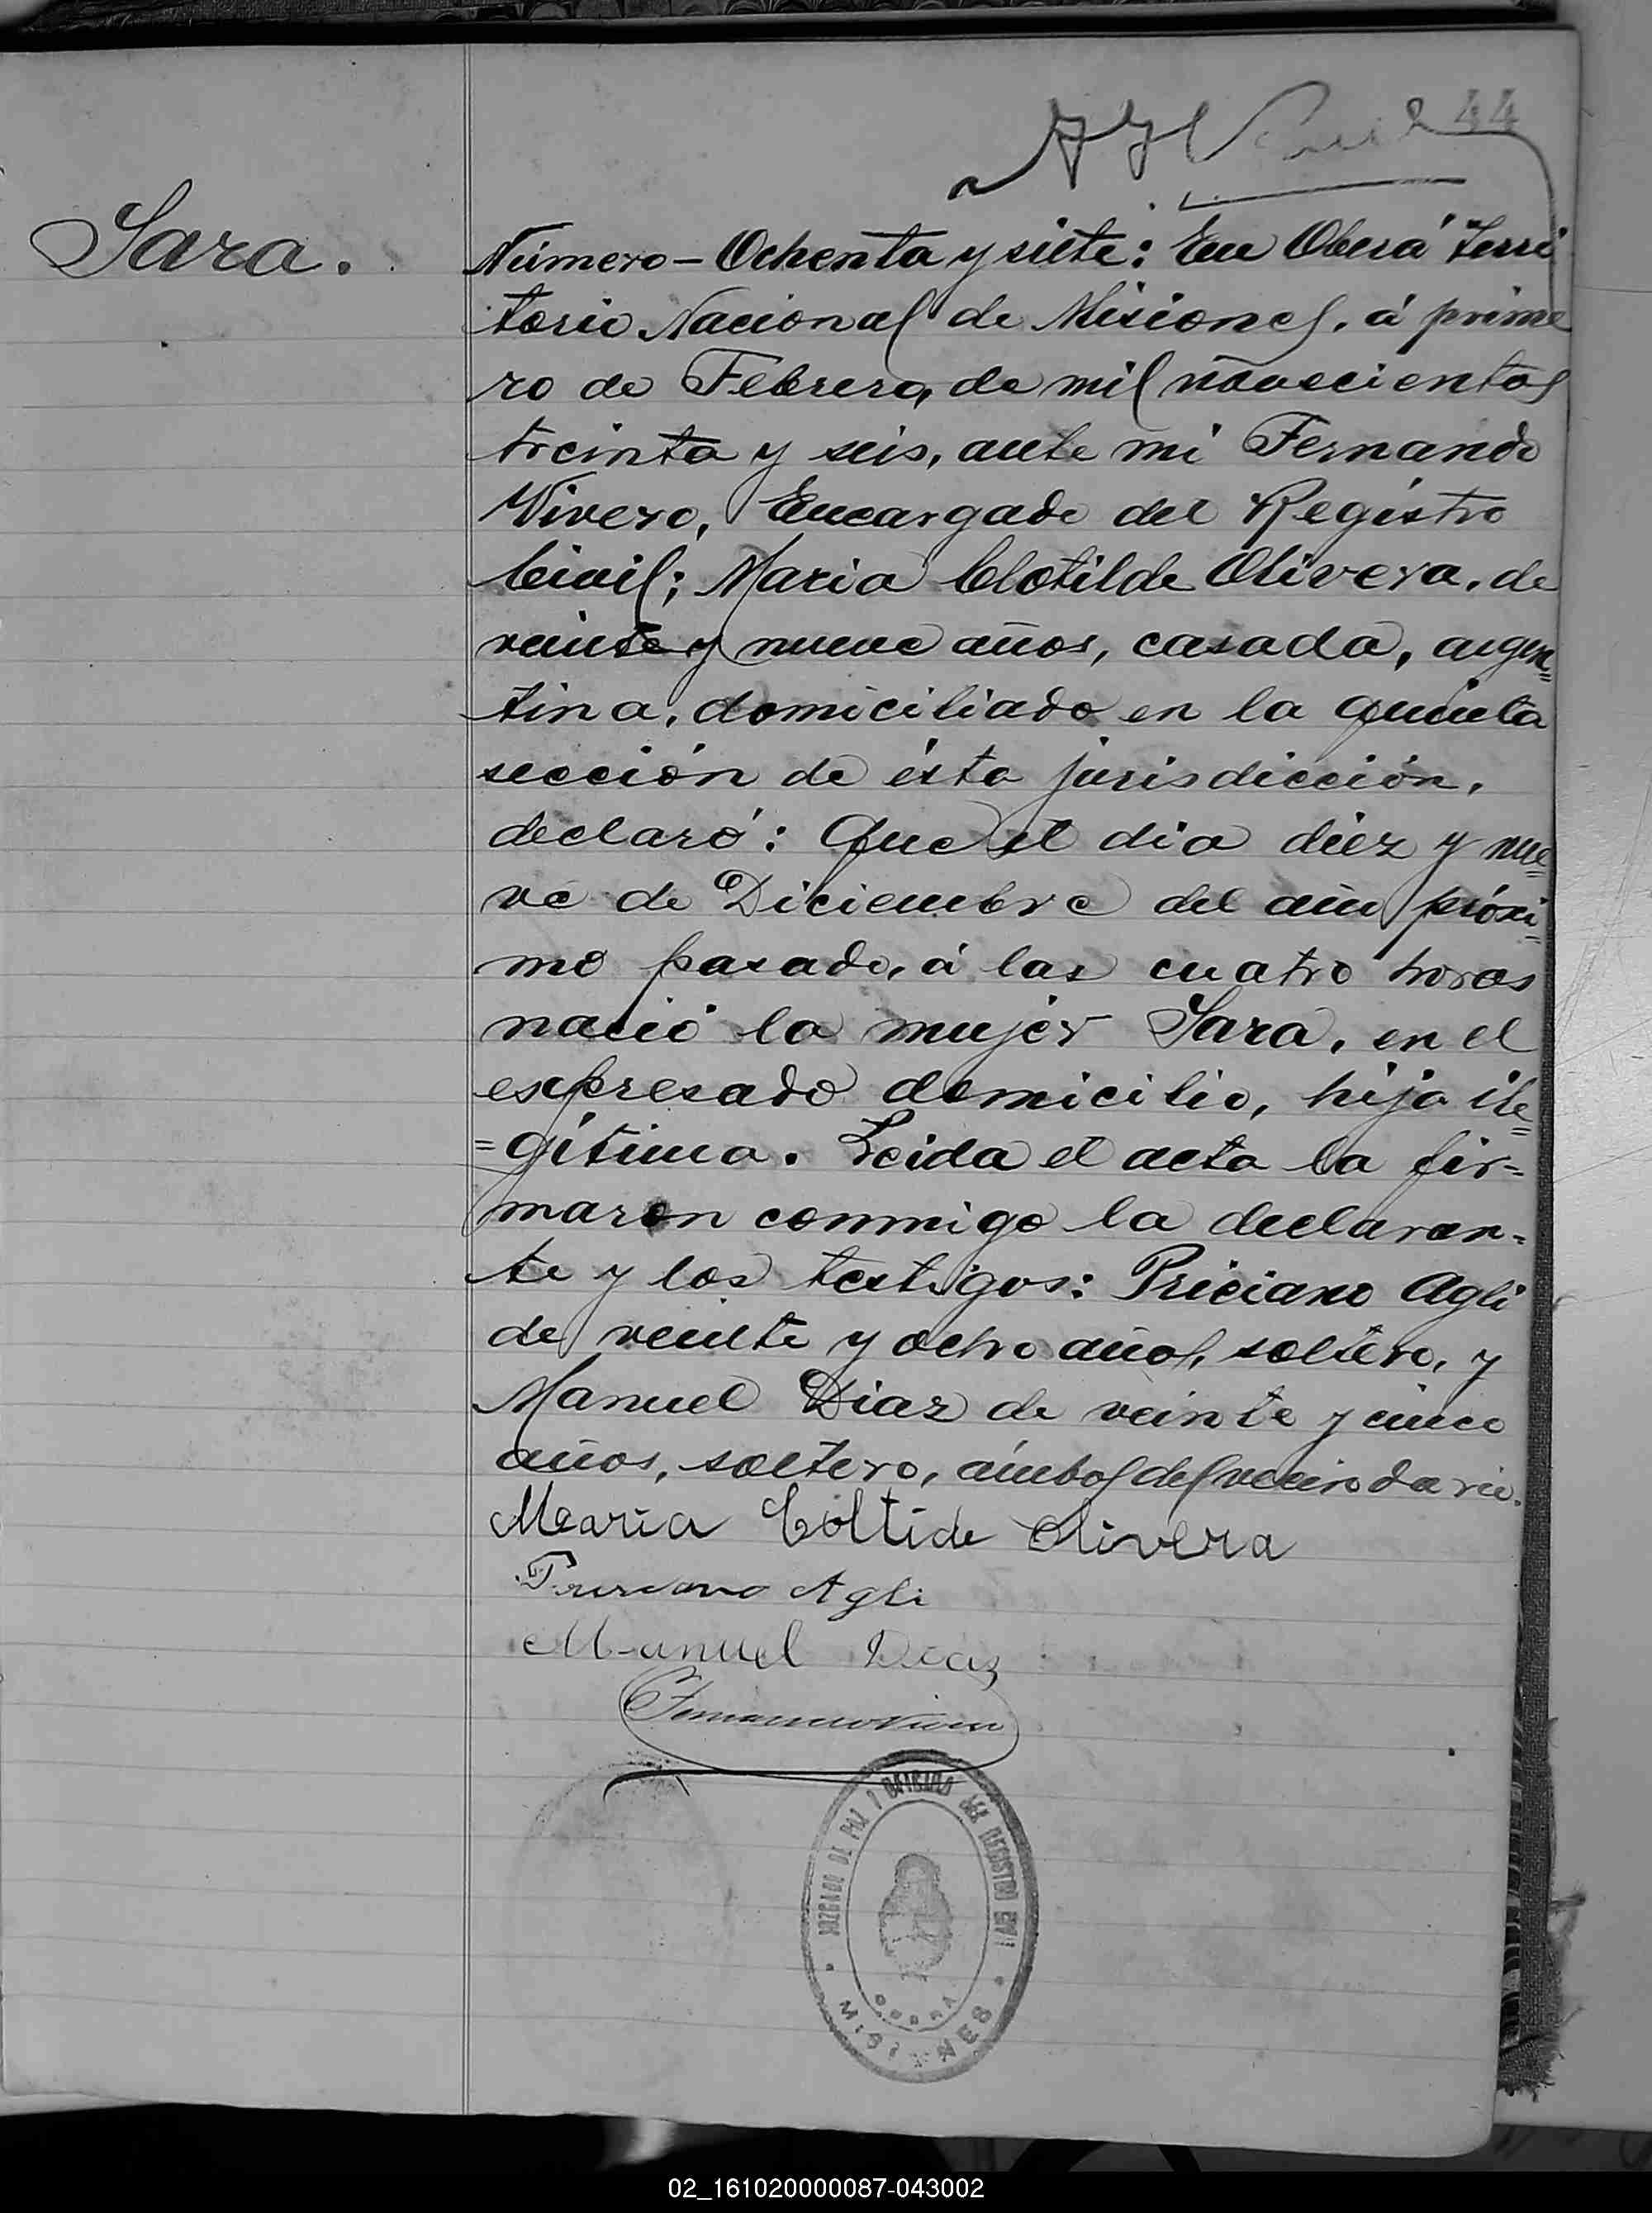 44
Sara.
Número - Ochenta y siete: En Oberá Terri
torio Nacional de Misiones, á prime
ro de Febrero, de mil novecientos
treinta y seis, ante mi Fernando
Vivero, Encargado del Registro
Civil; Maria Clotilde Olivera, de
veinte y nueve años, casada, argen=
tina, domiciliado en la quinta
sección de ésta jurisdicción,
declaró: Que el dia diez y nue=
ve de Diciembre del año próxi=
mo pasado, á las cuatro horas
nació la mujer Sara, en el
expresado domicilio, hija ile=
=gítima. Leida el acta la fir=
maron conmigo la declaran=
te y los testigos: Priciano Agli
de veinte y ocho años, soltero, y
Manuel Diaz de veinte y cinco
años, soltero, ámbos del vecindario.
Maria Coltide Olivera
Priciano Agli
Manuel Diaz
Fernando Vivero
JUZGADO DE PAZ Y OFICINA DEL REGISTRO CIVIL
OBERA
MISIONES
02_161020000087-043002